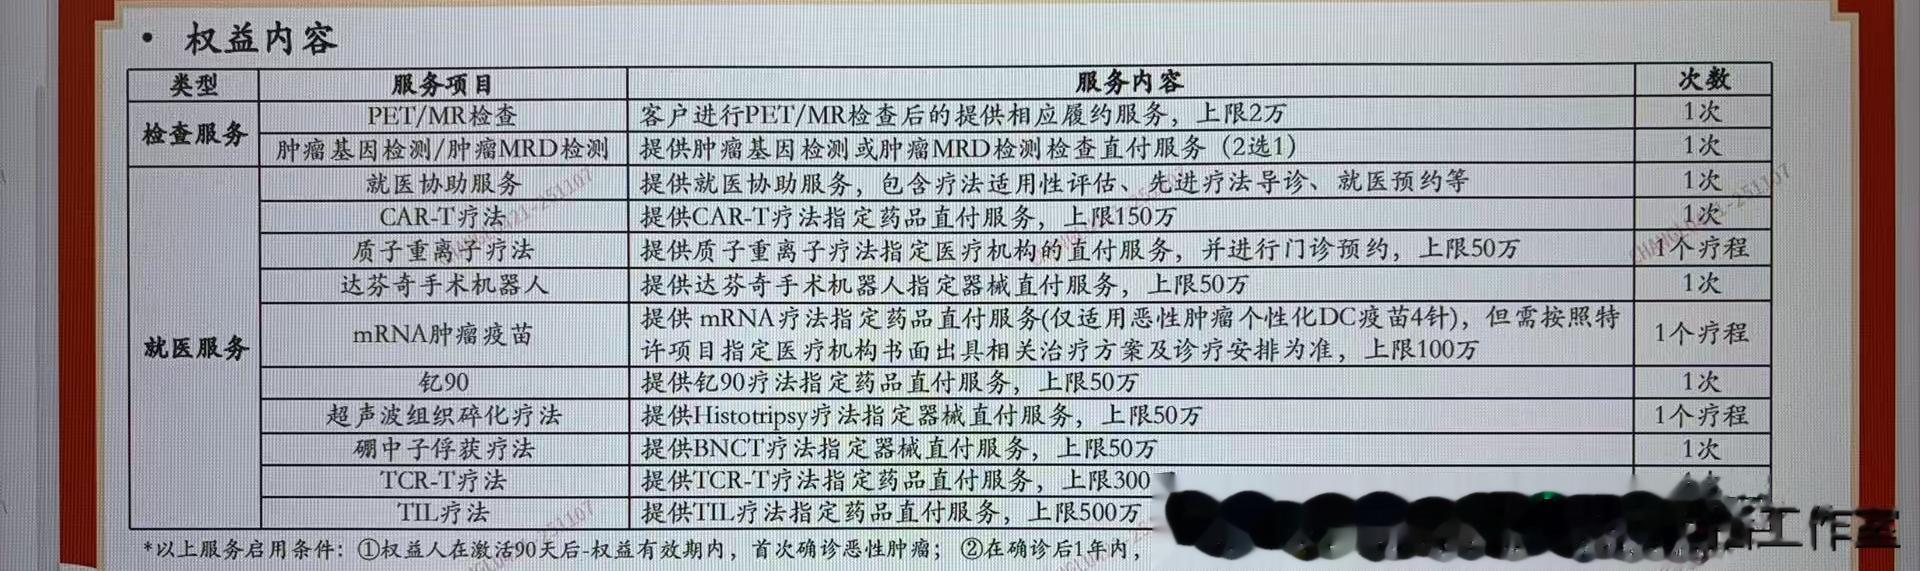 • 权益内容
类型 服务项目 服务内容 次数
检查服务 PET/MR检查 客户进行PET/MR检查后的提供相应履约服务，上限2万 1次
肿瘤基因检测/肿瘤MRD检测 提供肿瘤基因检测或肿瘤MRD检测检查直付服务（2选1） 1次
就医服务 就医协助服务 提供就医协助服务，包含疗法适用性评估、先进疗法导诊、就医预约等 1次
CAR-T疗法 提供CAR-T疗法指定药品直付服务，上限150万 1次
质子重离子疗法 提供质子重离子疗法指定医疗机构的直付服务，并进行门诊预约，上限50万 1个疗程
达芬奇手术机器人 提供达芬奇手术机器人指定器械直付服务，上限50万 1次
mRNA肿瘤疫苗 提供 mRNA疗法指定药品直付服务(仅适用恶性肿瘤个性化DC疫苗4针)，但需按照特
许项目指定医疗机构书面出具相关治疗方案及诊疗安排为准，上限100万 1个疗程
钇90 提供钇90疗法指定药品直付服务，上限50万 1次
超声波组织碎化疗法 提供Histotripsy疗法指定器械直付服务，上限50万 1个疗程
硼中子俘获疗法 提供BNCT疗法指定器械直付服务，上限50万 1次
TCR-T疗法 提供TCR-T疗法指定药品直付服务，上限300
TIL疗法 提供TIL疗法指定药品直付服务，上限500万
*以上服务启用条件：①权益人在激活90天后-权益有效期内，首次确诊恶性肿瘤；②在确诊后1年内，
工作室